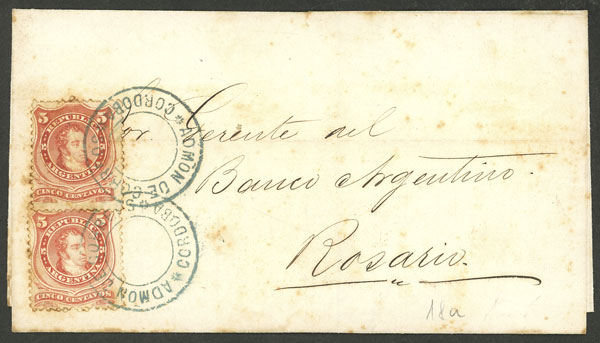 5 REPUBLICA 5
ARGENTINA
CINCO CENTAVOS
5 REPUBLICA 5
5 5
ARGENTINA
CINCO CENTAVOS
CORDOBA * ADMON DE
CORDOBA * ADMON
Sor. Gerente del
Banco Argentino
Rosario.
18a